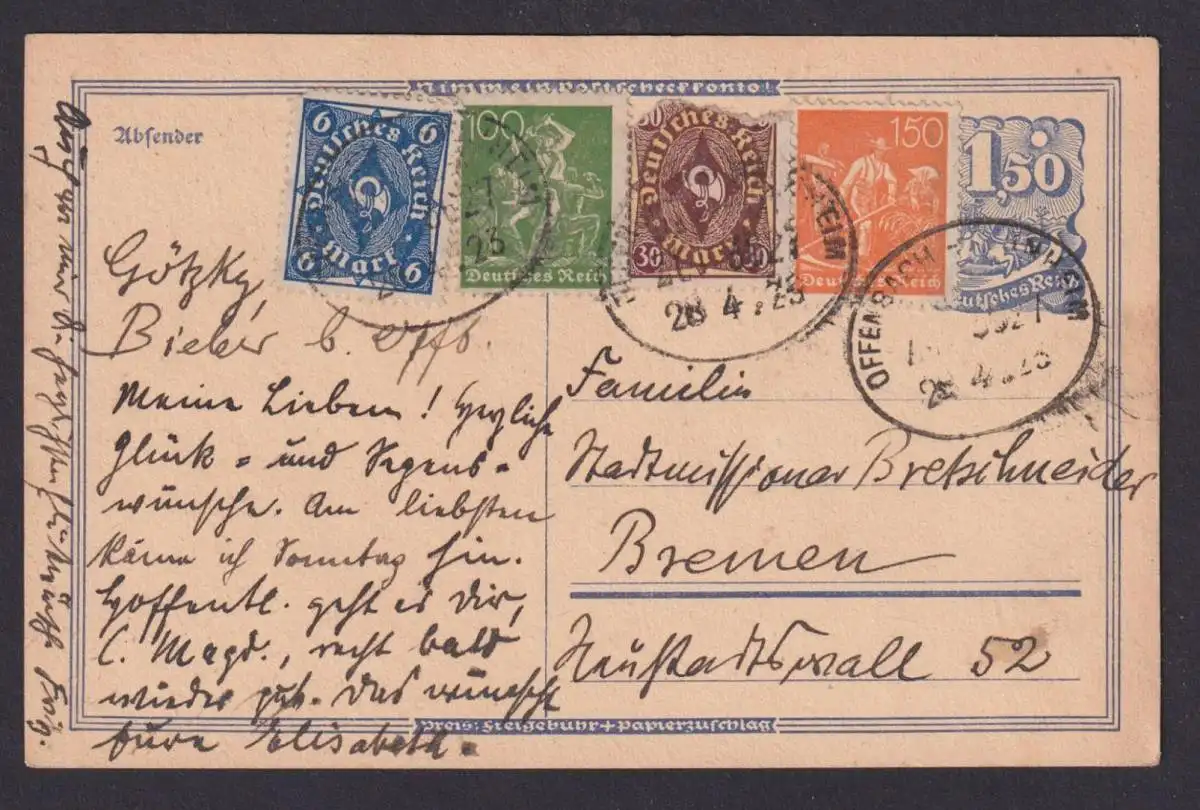 Nimm ein Postscheckkonto!
Absender
6 6
Deutsches Reich
6 Mark 6
100
Deutsches Reich
Deutsches Reich
30 Mark 30
150
Deutsches Reich
1,50
Deutsches Reich
28 4.23
OFFENBACH
28.4.23
Götzky,
Bieber b. Offb.
Meine Lieben! Herzliche
Glück- und Segens-
wünsche. Am liebsten
käme ich Sonntag hin.
Hoffentl. geht es Dir,
l. Magd., recht bald
wieder gut. Das wünscht
Eure Elisabeth.
Auch von mir die herzlichsten Glückwünsche
Familie
Stadtmissionar Bretschneider
Bremen
Neustadtswall 52
Preis: Freigebühr + Papierzuschlag